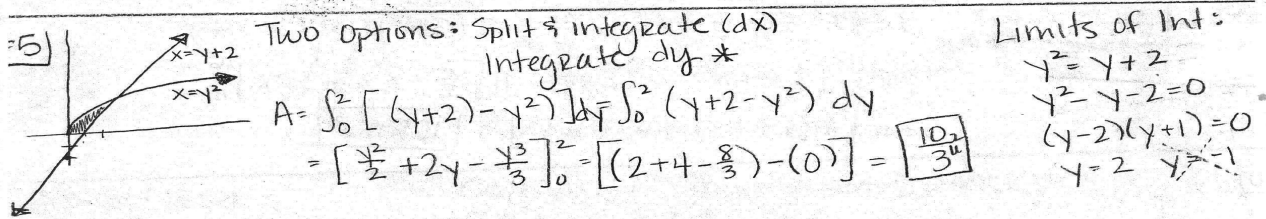 5)
x=y+2
x=y²
Two Options: Split & integrate (dx)
Integrate dy *
A= ∫₀² [(y+2)-y²)]dy = ∫₀² (y+2-y²) dy
= [y²/2 + 2y - y³/3]₀² = [(2+4-8/3)-(0)] = 10/3 u²
Limits of Int:
y²=y+2
y²-y-2=0
(y-2)(y+1)=0
y=2 y=-1